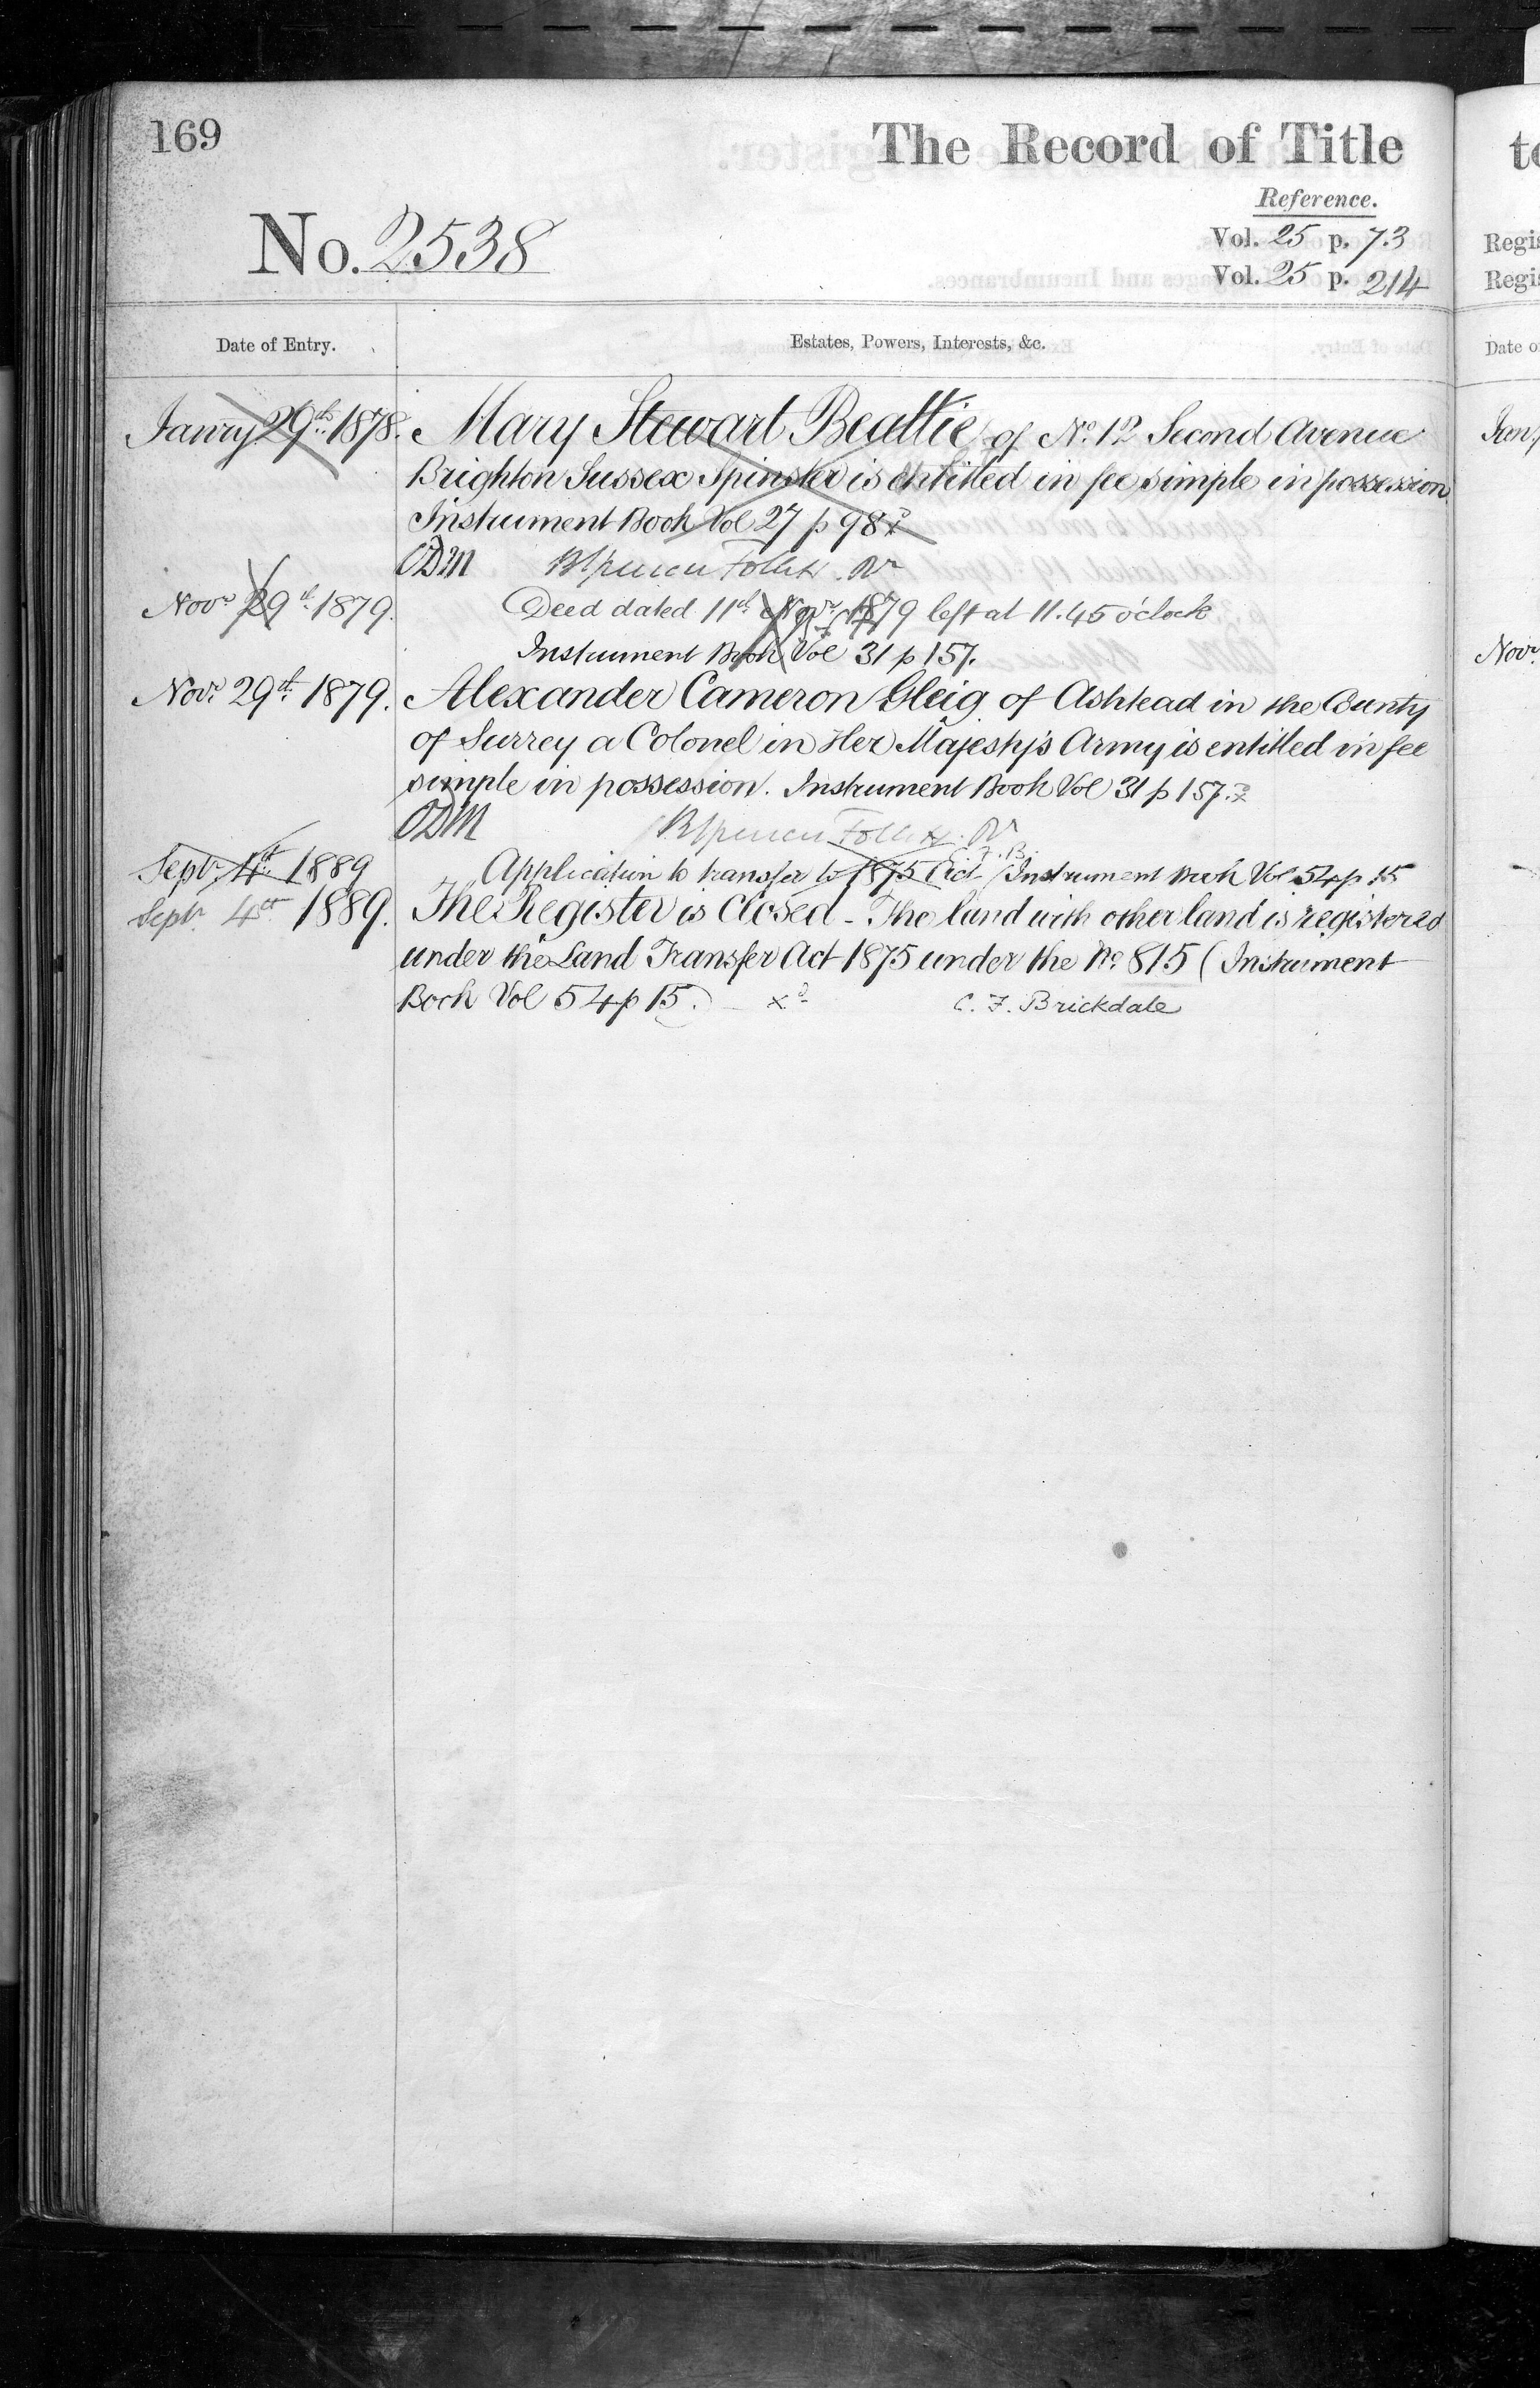 169
The Record of Title
Reference.
No. 2538
Vol. 25 p. 73
Vol. 25 p. 214
Date of Entry. Estates, Powers, Interests, &c.
Janry 29th 1878. Mary Stewart Beattie of No. 12 Second Avenue
Brighton Sussex Spinster is entitled in fee simple in possession
Instrument Book Vol 27 p 98 xd
ODM Follett Rr
Novr 29th 1879. Deed dated 11th Novr 1879 left at 11.45 o'clock
Instrument Book Vol 31 p 157.
Novr 29th 1879. Alexander Cameron Gleig of Ashtead in the County
of Surrey a Colonel in Her Majesty's Army is entitled in fee
simple in possession. Instrument Book Vol 31 p 157. xd
ODM Follett Rr
C.F.B.
Septr 4th 1889 Application to transfer to 1875 Act Instrument Book Vol 54 p 15
Septr 4th 1889. The Register is Closed - The land with other land is registered
under the Land Transfer Act 1875 under the No. 815 (Instrument
Book Vol 54 p 15.) xd C. F. Brickdale
Regis
Regis
Date o
Novr